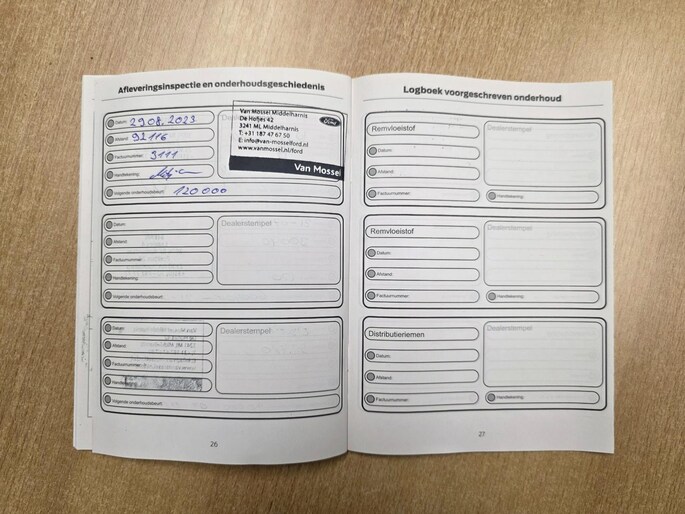 Afleveringsinspectie en onderhoudsgeschiedenis
Datum: 29.08.2023
Afstand: 92116
Factuurnummer: 3111
Handtekening:
Volgende onderhoudsbeurt: 120000
Van Mossel Middelharnis
De Hofjes 42
3241 ML Middelharnis
T: +31 187 47 67 50
E: info@van-mosselford.nl
www.vanmossel.nl/ford
Ford
Van Mossel
Datum:
Afstand:
Factuurnummer:
Handtekening:
Volgende onderhoudsbeurt:
Dealerstempel
Datum:
Afstand:
Factuurnummer:
Volgende onderhoudsbeurt:
Dealerstempel
26
Logboek voorgeschreven onderhoud
Remvloeistof
Datum:
Afstand:
Factuurnummer:
Handtekening:
Dealerstempel
Remvloeistof
Datum:
Afstand:
Factuurnummer:
Handtekening:
Dealerstempel
Distributieriemen
Datum:
Afstand:
Factuurnummer:
Handtekening:
Dealerstempel
27